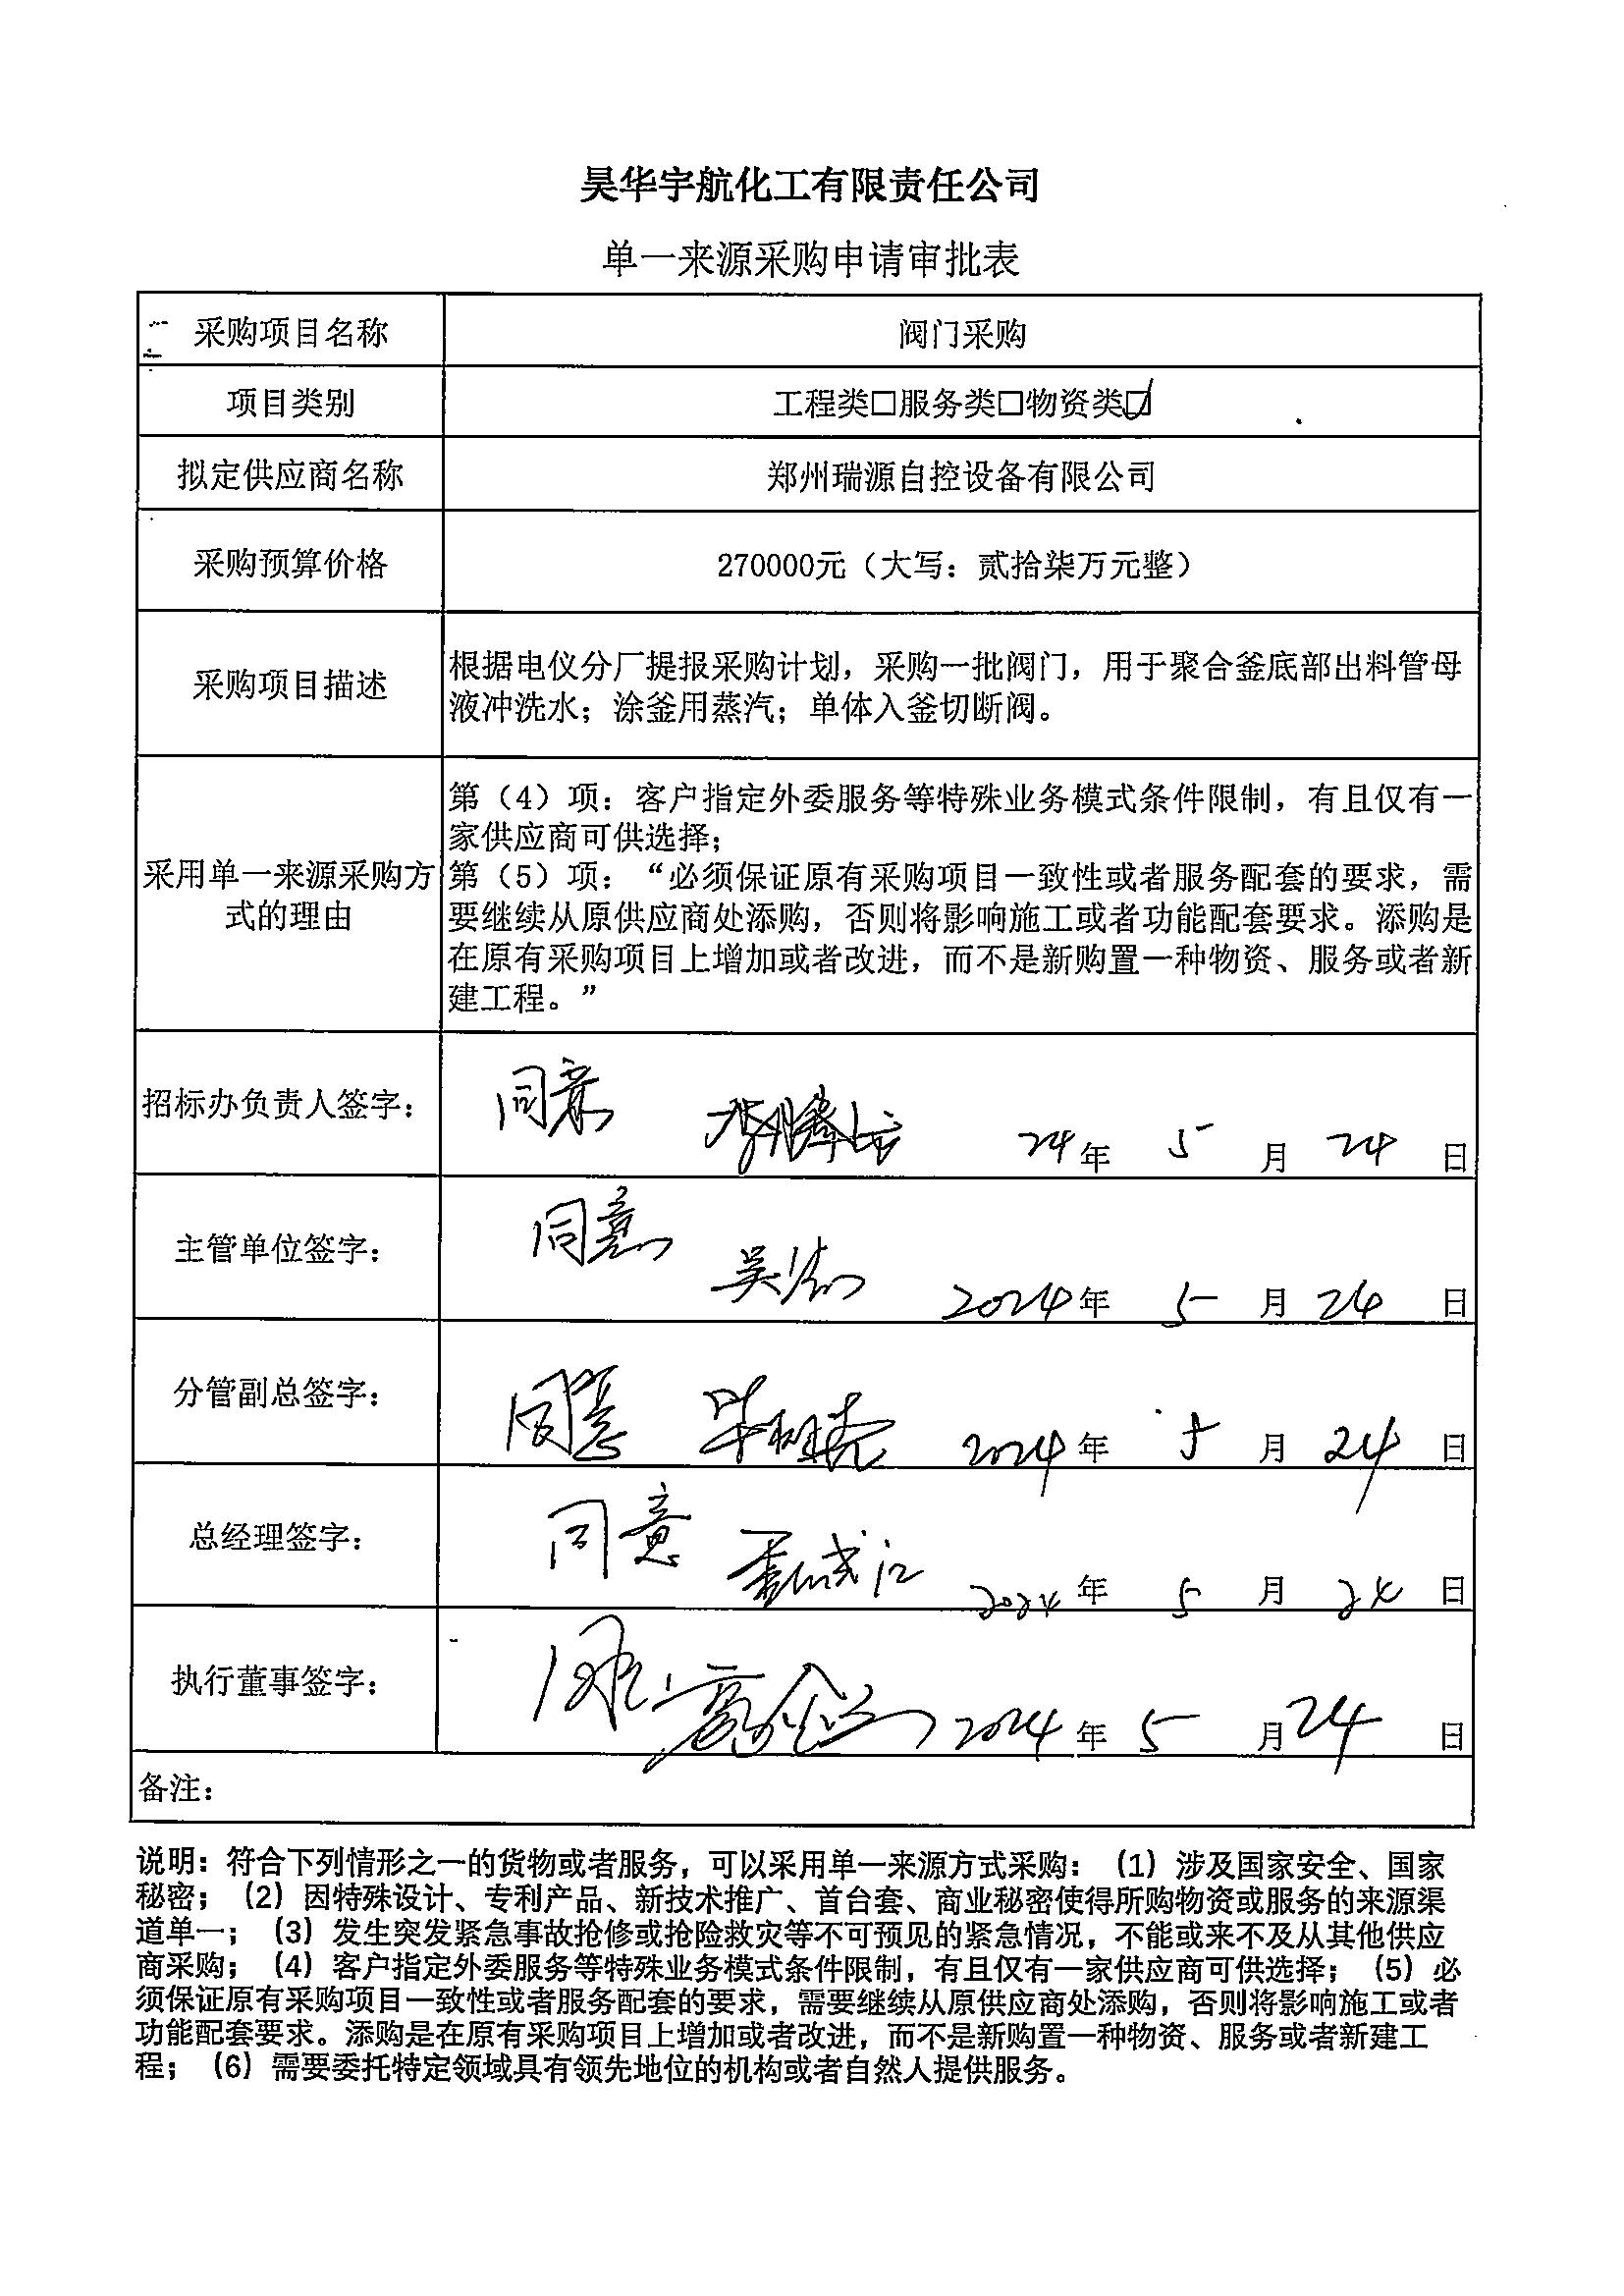 昊华宇航化工有限责任公司
单一来源采购申请审批表
采购项目名称
阀门采购
项目类别
工程类□服务类□物资类☑
拟定供应商名称
郑州瑞源自控设备有限公司
采购预算价格
270000元（大写：贰拾柒万元整）
采购项目描述
根据电仪分厂提报采购计划，采购一批阀门，用于聚合釜底部出料管母
液冲洗水；涂釜用蒸汽；单体入釜切断阀。
采用单一来源采购方
式的理由
第（4）项：客户指定外委服务等特殊业务模式条件限制，有且仅有一
家供应商可供选择；
第（5）项：“必须保证原有采购项目一致性或者服务配套的要求，需
要继续从原供应商处添购，否则将影响施工或者功能配套要求。添购是
在原有采购项目上增加或者改进，而不是新购置一种物资、服务或者新
建工程。”
招标办负责人签字：
同意
24年 5月 24日
主管单位签字：
同意
2024年 5月 24日
分管副总签字：
同意
2024年 5月 24日
总经理签字：
同意
2024年 5月 24日
执行董事签字：
2024年 5月 24日
备注：
说明：符合下列情形之一的货物或者服务，可以采用单一来源方式采购：（1）涉及国家安全、国家
秘密；（2）因特殊设计、专利产品、新技术推广、首台套、商业秘密使得所购物资或服务的来源渠
道单一；（3）发生突发紧急事故抢修或抢险救灾等不可预见的紧急情况，不能或来不及从其他供应
商采购；（4）客户指定外委服务等特殊业务模式条件限制，有且仅有一家供应商可供选择；（5）必
须保证原有采购项目一致性或者服务配套的要求，需要继续从原供应商处添购，否则将影响施工或者
功能配套要求。添购是在原有采购项目上增加或者改进，而不是新购置一种物资、服务或者新建工
程；（6）需要委托特定领域具有领先地位的机构或者自然人提供服务。